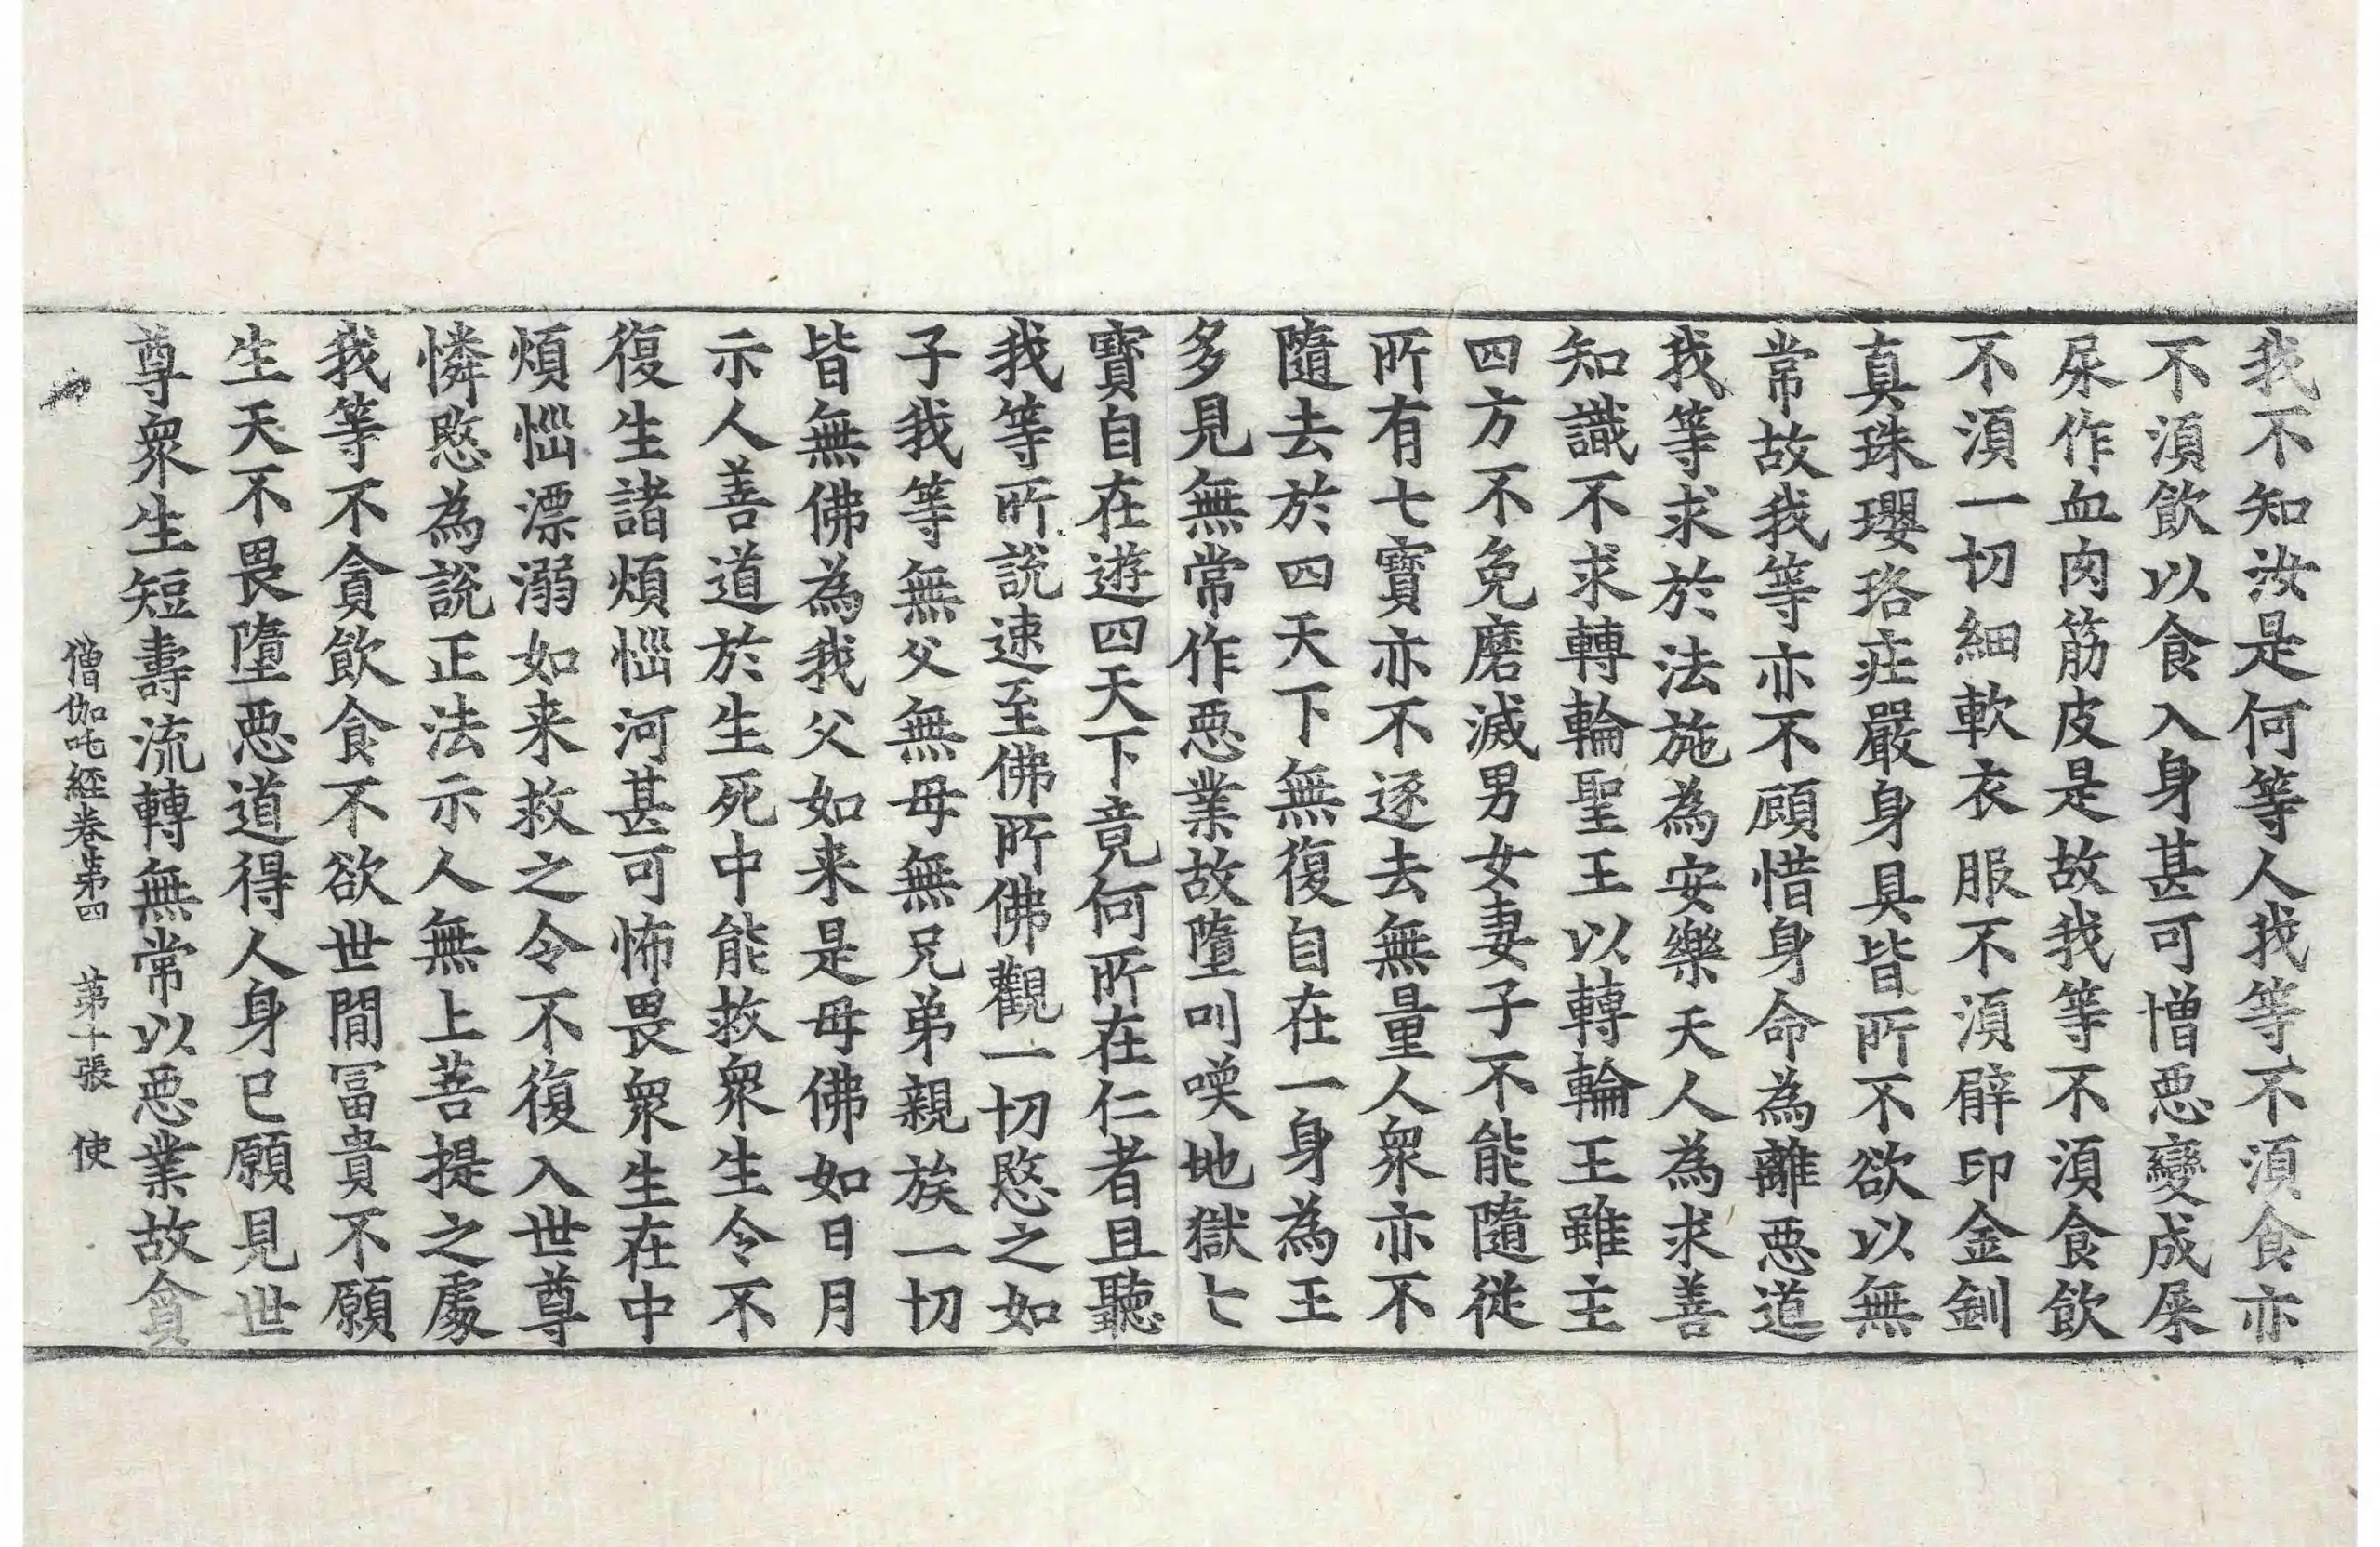 我不知汝是何等人我等不湏食亦
不湏飲以食入身甚可憎惡變成屎
尿作血肉筋皮是故我等不湏食飲
不湏一切細軟衣服不湏臂印金釧
真珠瓔珞莊嚴身具皆所不欲以無
常故我等亦不顧惜身命為離惡道
我等求於法施為安樂天人為求善
知識不求轉輪聖王以轉輪王雖主
四方不免磨滅男女妻子不能隨從
所有七寶亦不逐去無量人衆亦不
隨去於四天下無復自在一身為王
多見無常作惡業故墮叫嘆地獄七
寶自在遊四天下竟何所在仁者且聽
我等所說速至佛所佛觀一切愍之如
子我等無父無母無兄弟親族一切
皆無佛為我父如来是母佛如日月
示人善道於生死中能救衆生令不
復生諸煩惱河甚可怖畏衆生在中
煩惱漂溺如来救之令不復入世尊
憐愍為說正法示人無上菩提之處
我等不貪飲食不欲世間冨貴不願
生天不畏墮惡道得人身已願見世
尊衆生短壽流轉無常以惡業故貪
僧伽吒經卷第四 第十張 使